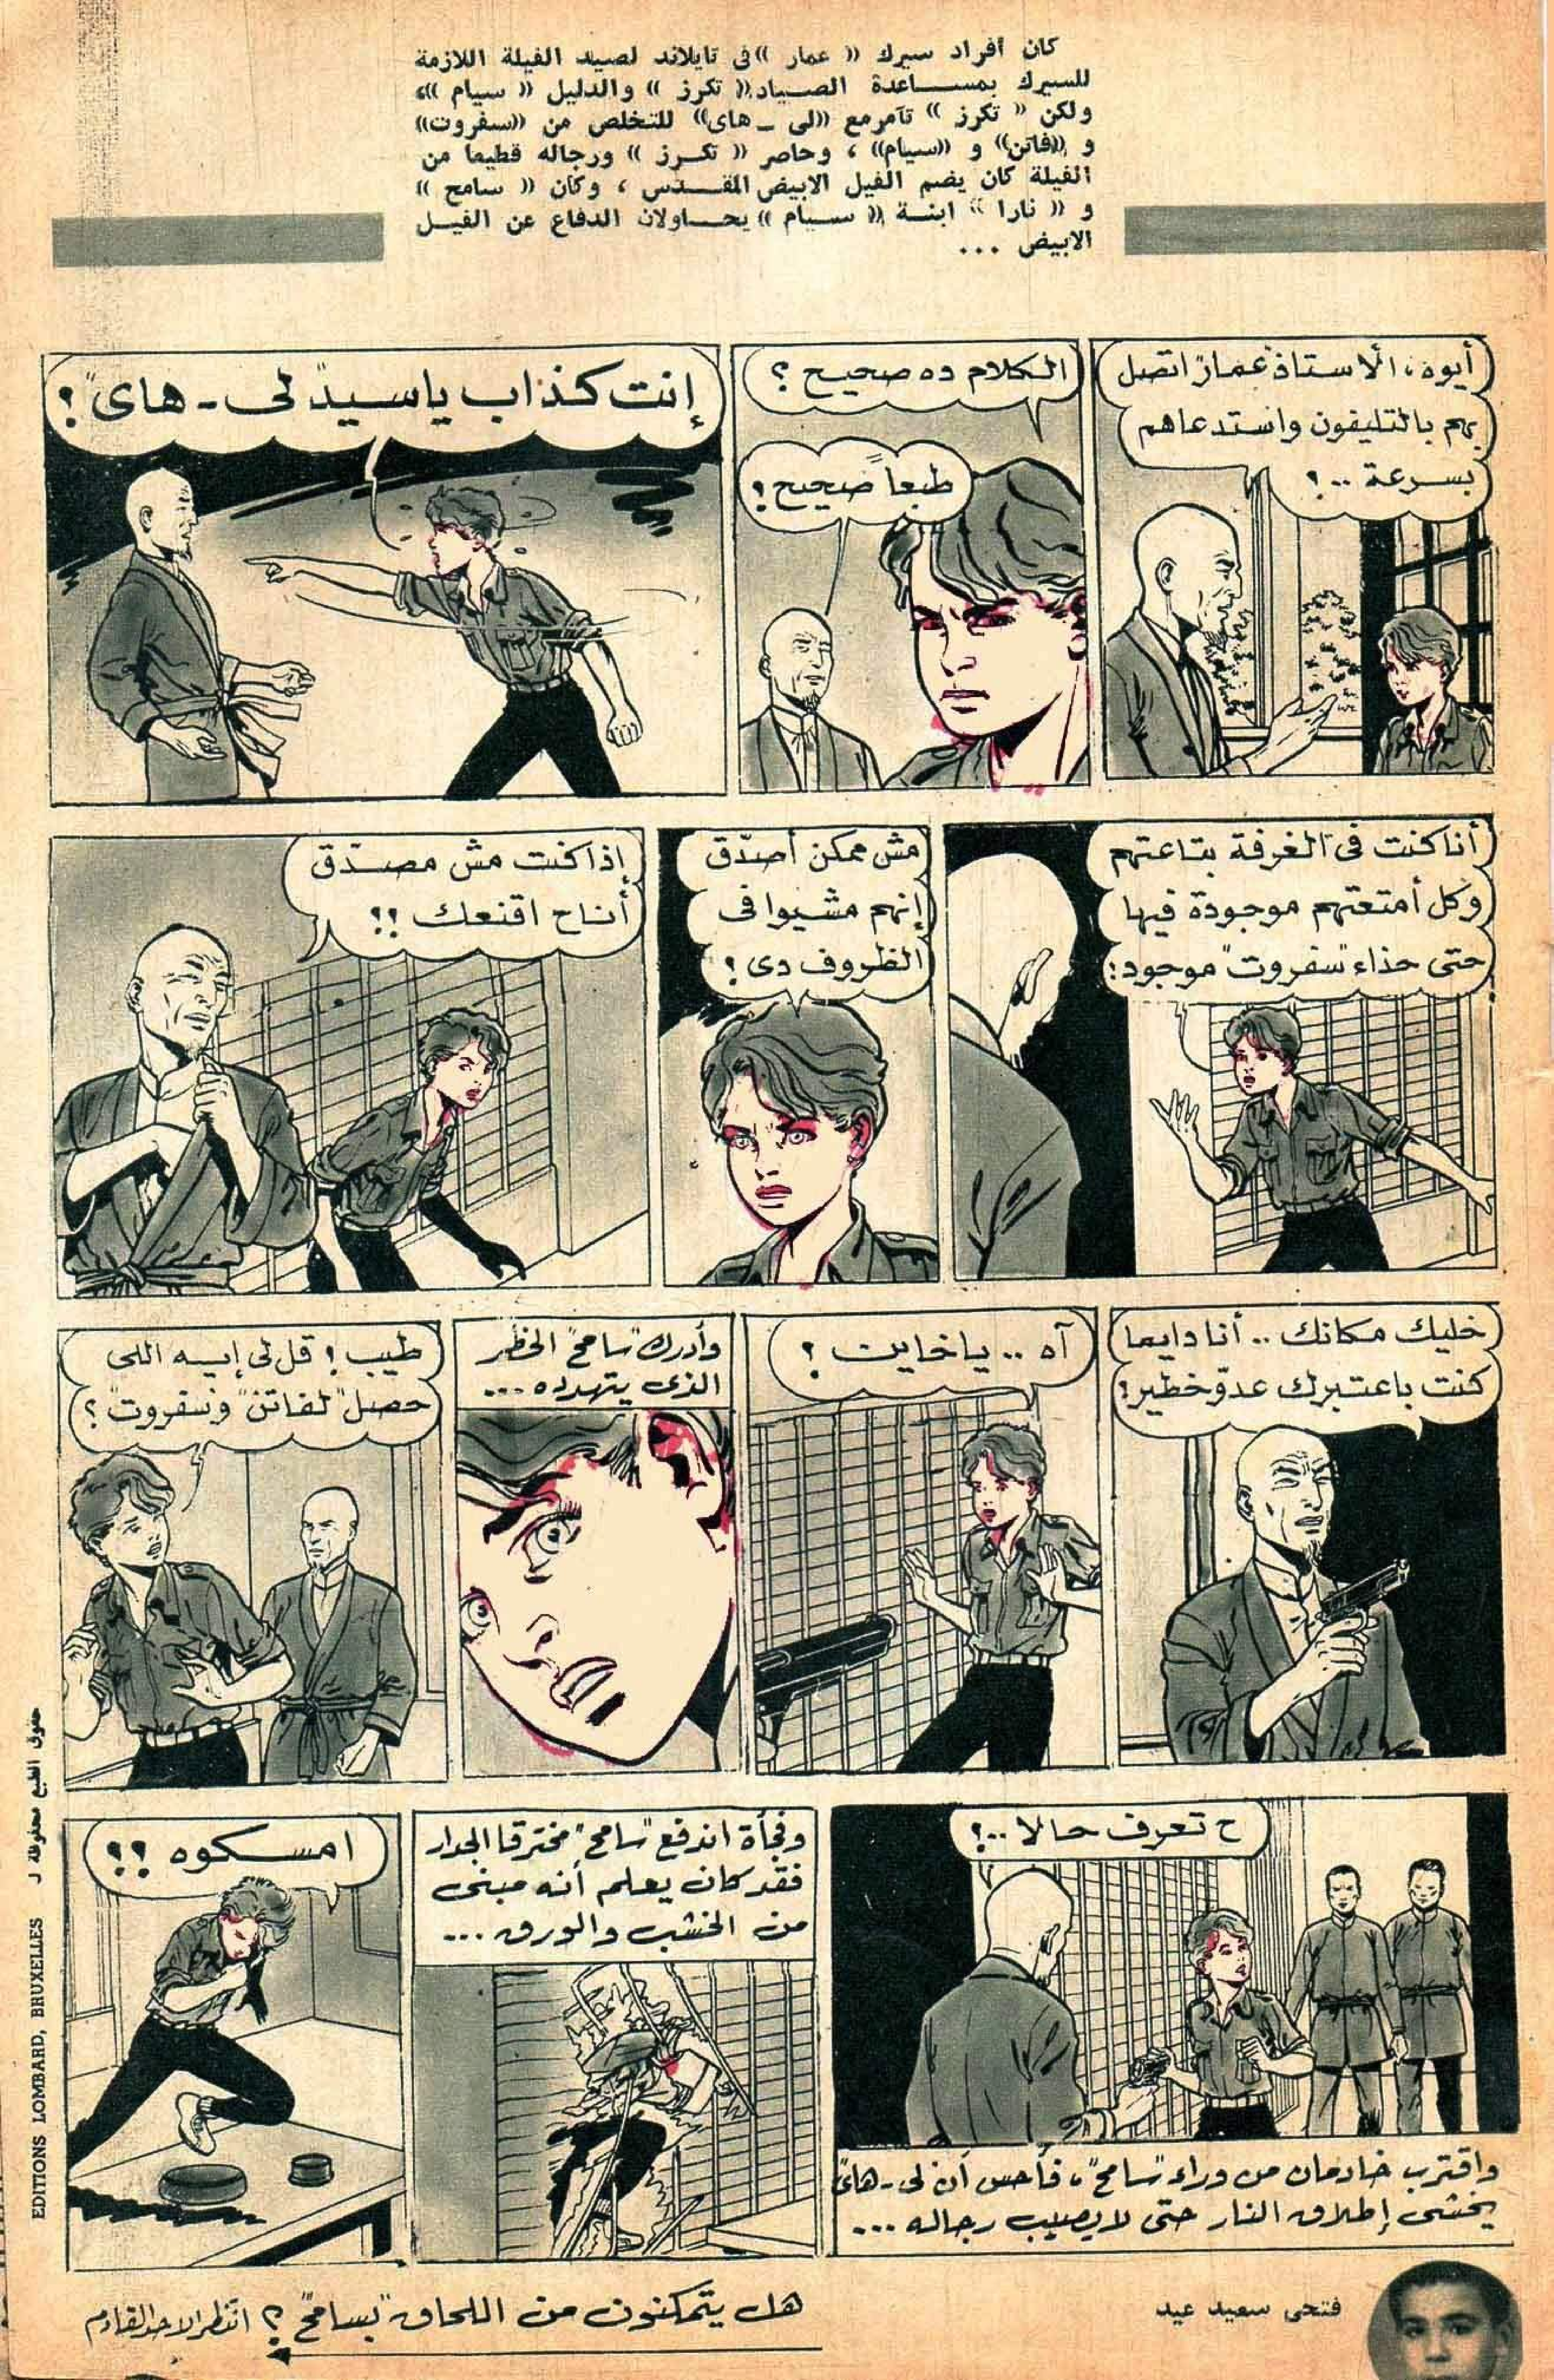 كان أفراد سيرك « عمار » فى تايلاند لصيد الفيلة اللازمة
للسيرك بمساعدة الصياد « تكرز » والدليل « سيام »،
ولكن « تكرز » تآمر مع «لى - هاى» للتخلص من «سفروت»
و «فاتن» و «سيام» ، وحاصر « تكرز » ورجاله قطيعا من
الفيلة كان يضم الفيل الابيض المقدس ، وكان « سامح »
و « نارا » ابنة « سيام » يحاولان الدفاع عن الفيل
الابيض ...
أيوه، الأستاذ "عمار" اتصل
بهم بالتليفون واستدعاهم
بسرعة ..؟
الكلام ده صحيح ؟
طبعاً صحيح !
إنت كذاب يا سيد "لى - هاى" !
أنا كنت فى الغرفة بتاعتهم
وكل أمتعتهم موجودة فيها
حتى حذاء "سفروت" موجود !
مش ممكن أصدّق
إنهم مشيوا فى
الظروف دى !
إذا كنت مش مصدّق
أنا ح اقنعك !!
خليك مكانك .. أنا دايما
كنت باعتبرك عدوّ خطير !
آه .. يا خاين !
وأدرك "سامح" الخطر
الذى يتهدده ...
طيب ! قل لى إيه اللى
حصل "لفاتن" و"سفروت" ؟
ح تعرف حالا ..!
واقترب خادمان من وراء "سامح"، فأحس أن لى - هاى
يخشى إطلاق النار حتى لا يصيب رجاله ...
وفجأة اندفع "سامح" مخترقا الجدار
فقد كان يعلم أنه مبنى
من الخشب والورق ...
امسكوه !!
حقوق الطبع محفوظة لـ
EDITIONS LOMBARD, BRUXELLES
فتحى سعيد عيد
هل يتمكنون من اللحاق "بسامح" ؟ انتظر الاحد القادم